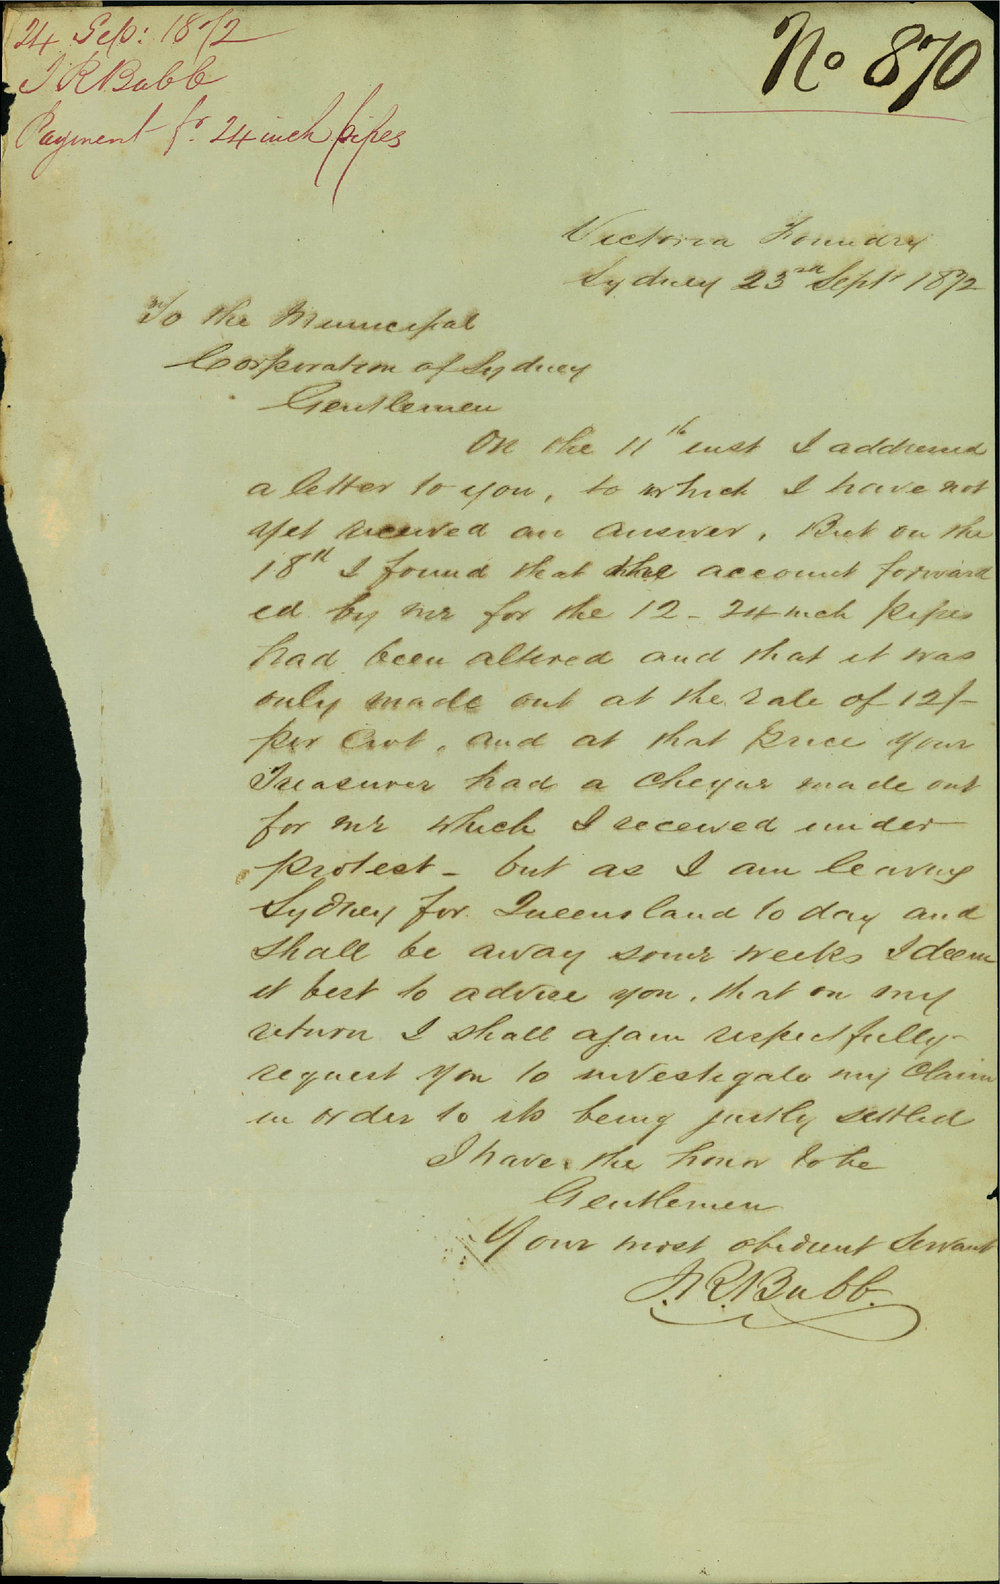 24 Sep: 1872
J R Bubb
Payment fr. 24 inch pipes
No 870
Victoria Foundry
Sydney 23rd Sept 1872
To the Municipal
Corporation of Sydney
Gentlemen
On the 11th inst I addressed
a letter to you, to which I have not
yet received an answer, But on the
18th I found that the account forward
ed by me for the 12 - 24 inch pipes
had been altered and that it was
only made out at the rate of 12/-
per Cwt, and at that price your
Treasurer had a cheque made out
for me which I received under
protest - but as I am leaving
Sydney for Queensland to day and
shall be away some weeks I deem
it best to advise you, that on my
return I shall again respectfully
request you to investigate my claim
in order to its being justly settled
I have the honor to be
Gentlemen
Your most obedient Servant
J. R. Bubb.